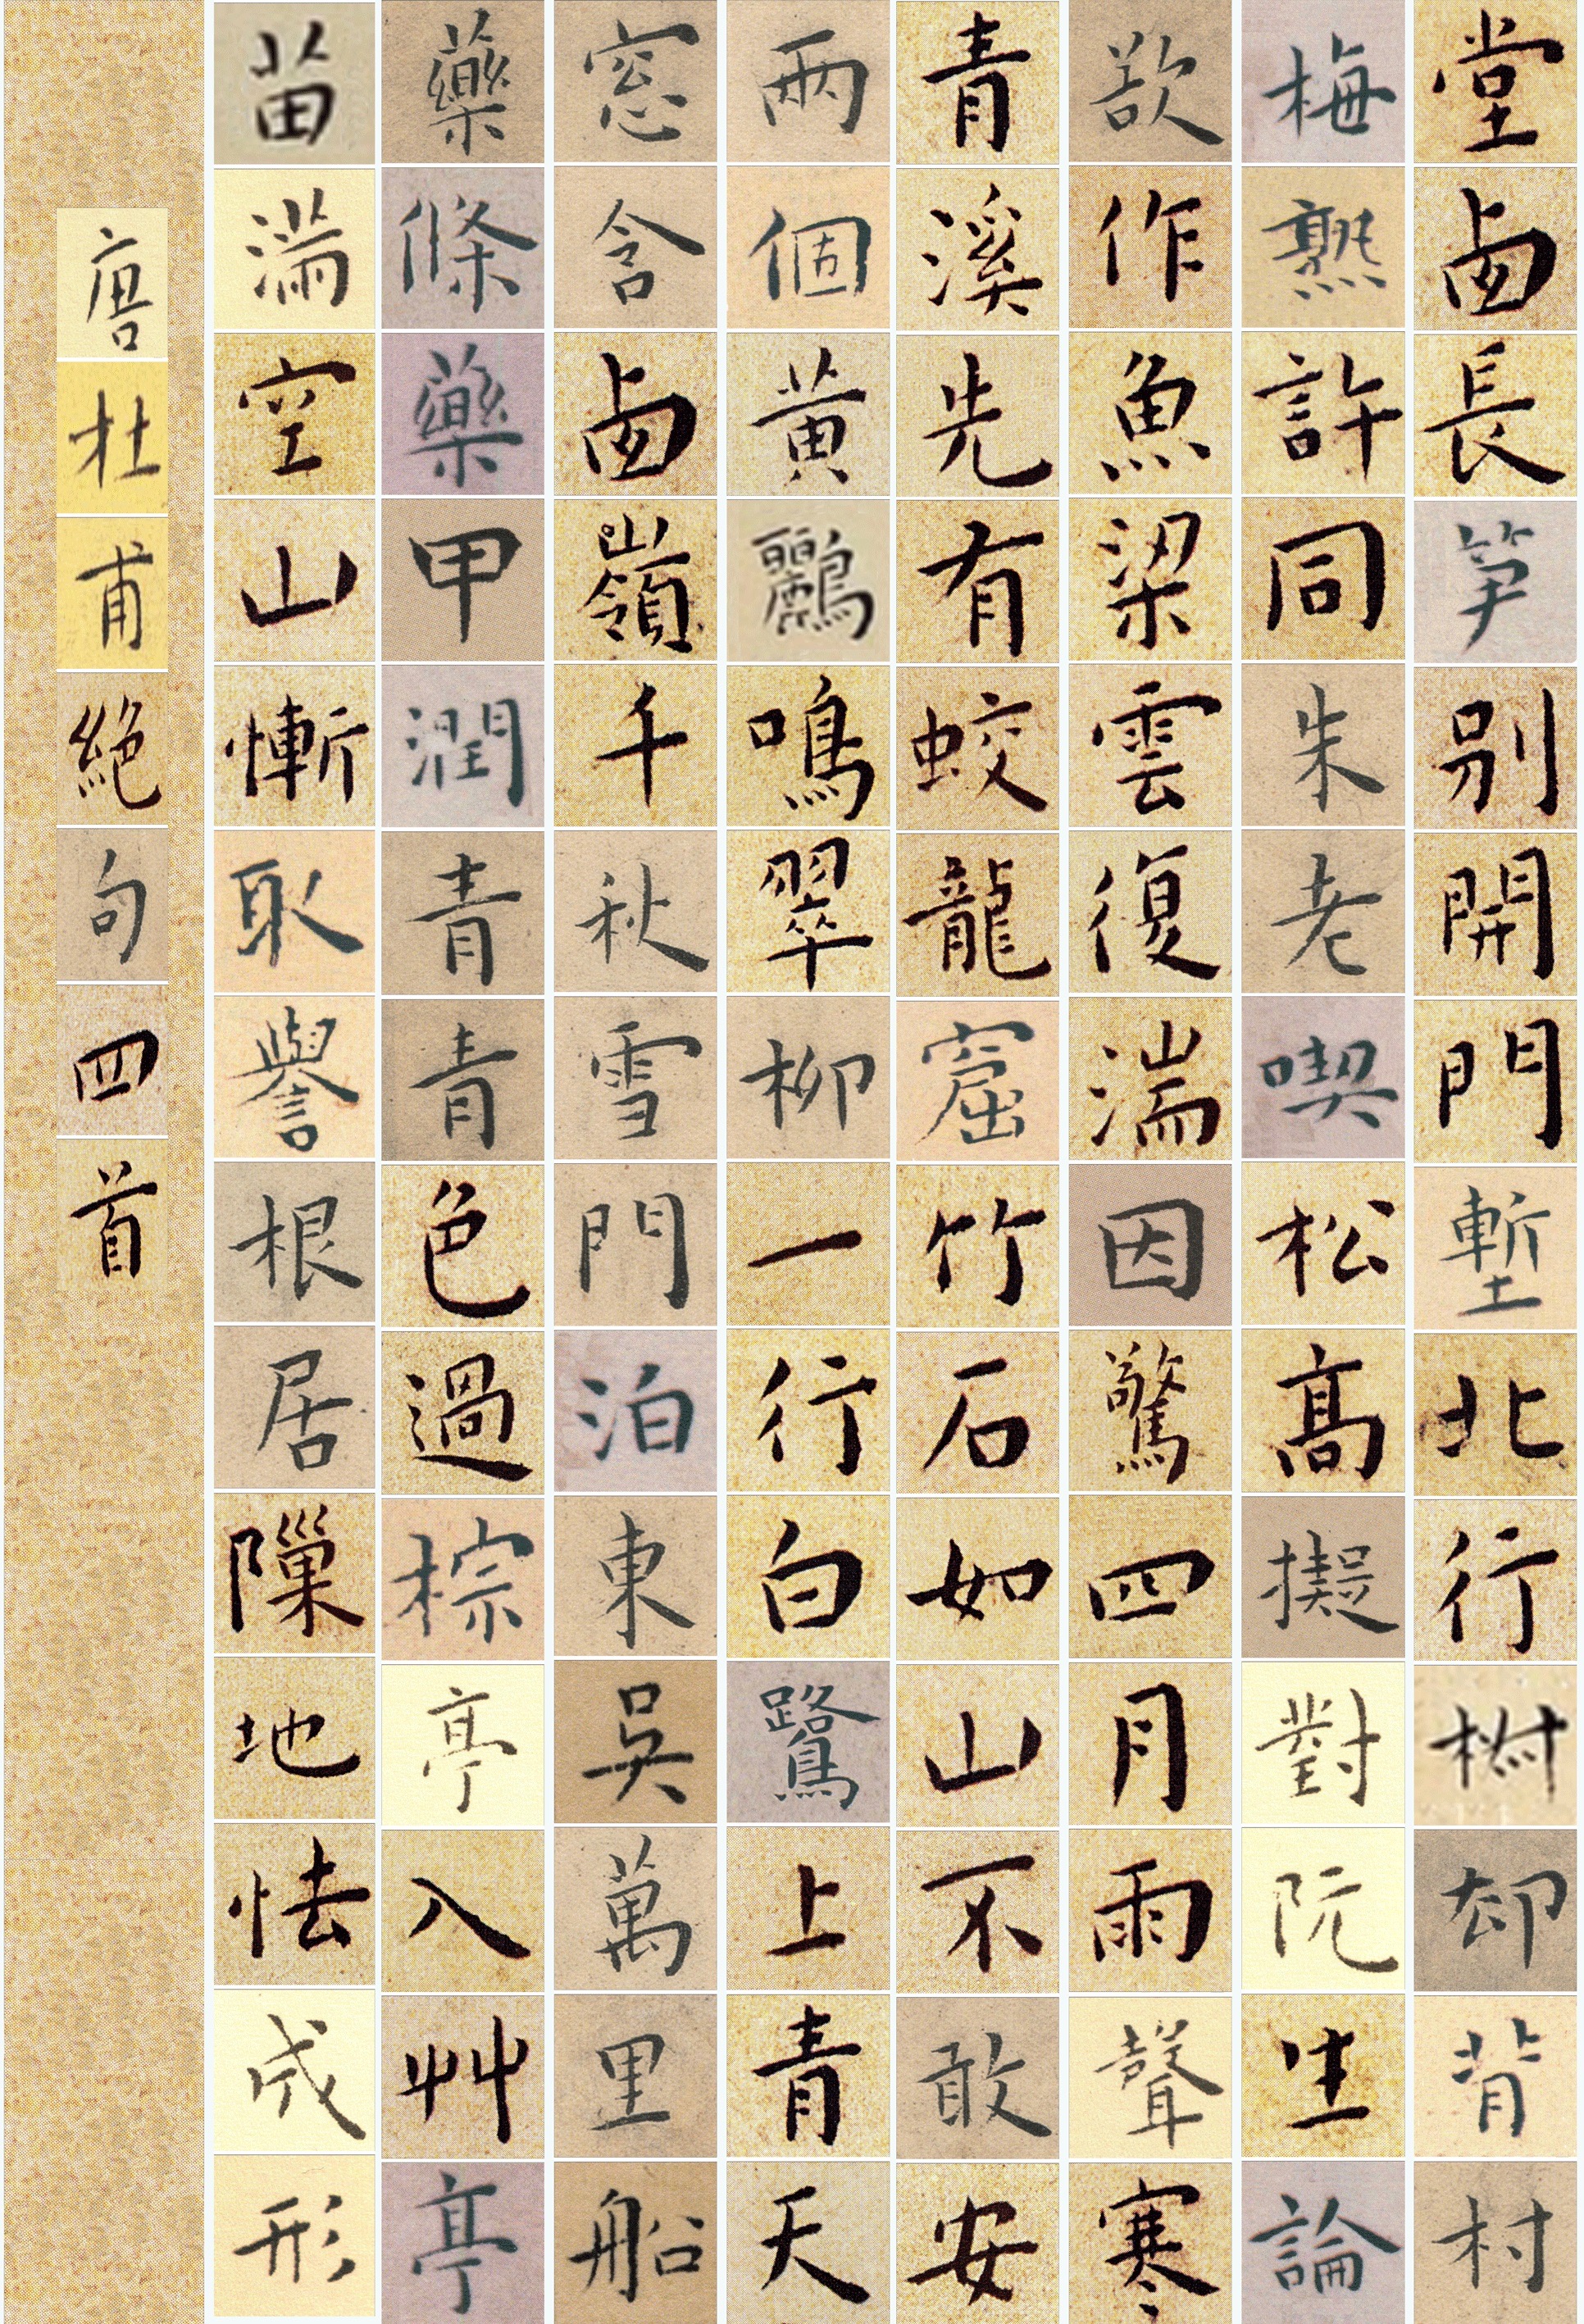 堂卥長笋別開門塹北行樹却背村
梅熟許同朱老喫松高擬對阮生論
欲作魚梁雲復湍因驚四月雨聲寒
青溪先有蛟龍窟竹石如山不敢安
兩個黃鸝鳴翠柳一行白鷺上青天
窓含卥嶺千秋雪門泊東吳萬里船
藥條藥甲潤青青色過棕亭入艸亭
苗滿空山慚取譽根居隟地怯成形
唐杜甫絕句四首